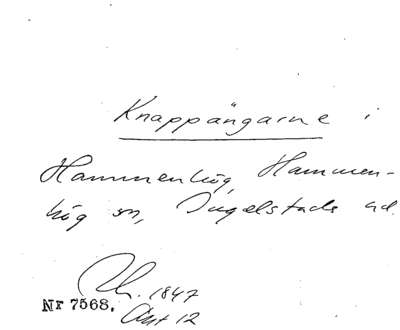 Knappängarne i
Hammenhög, Hammen-
hög sn, Ingelstads hd.
1847
Nr 7568.
Akt 12